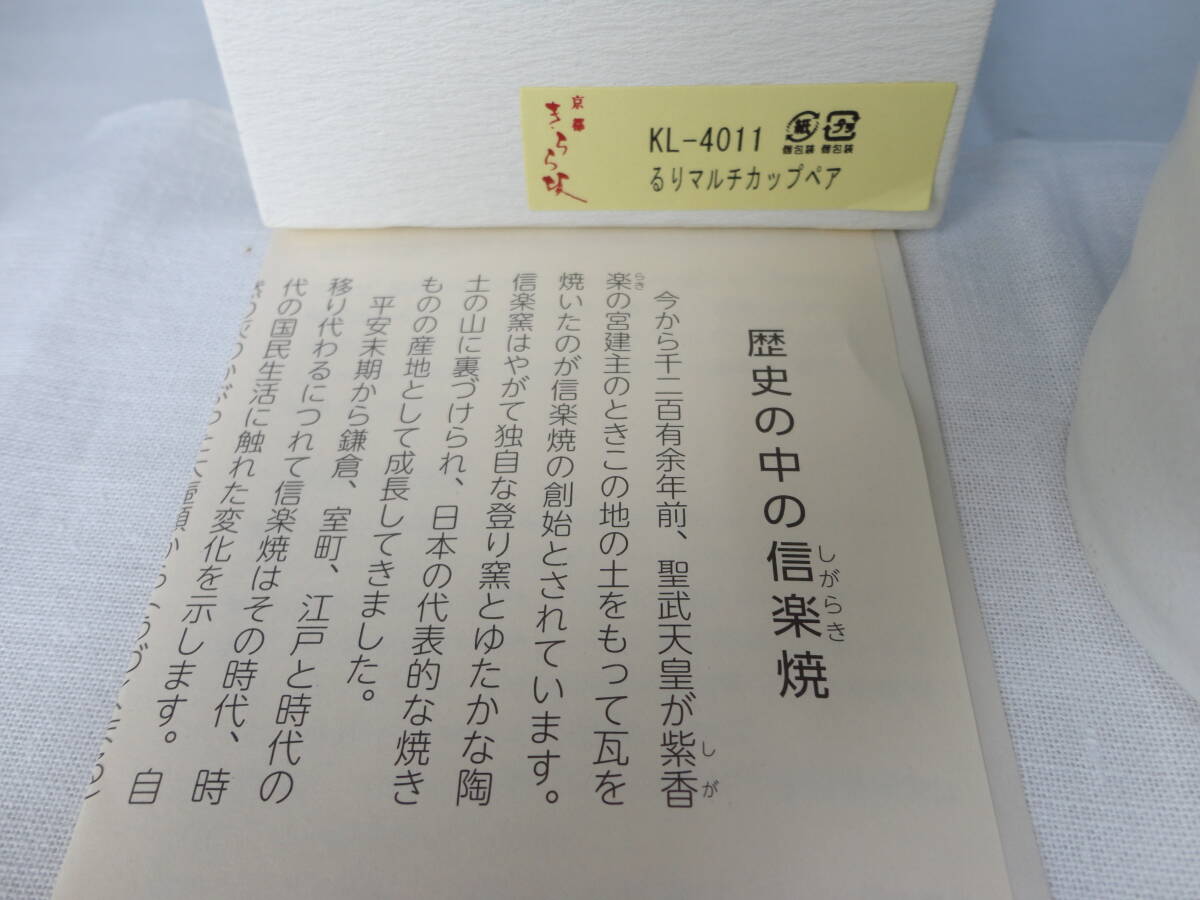 京都
きらら坂
KL-4011
るりマルチカップペア
紙
個包装
プラ
個包装
歴史の中の信楽焼
しがらき
今から千二百有余年前、聖武天皇が紫香
しが
楽の宮建主のときこの地の土をもって瓦を
らき
焼いたのが信楽焼の創始とされています。
信楽窯はやがて独自な登り窯とゆたかな陶
土の山に裏づけられ、日本の代表的な焼き
ものの産地として成長してきました。
平安末期から鎌倉、室町、江戸と時代の
移り代わるにつれて信楽焼はその時代、時
代の国民生活に触れた変化を示します。自